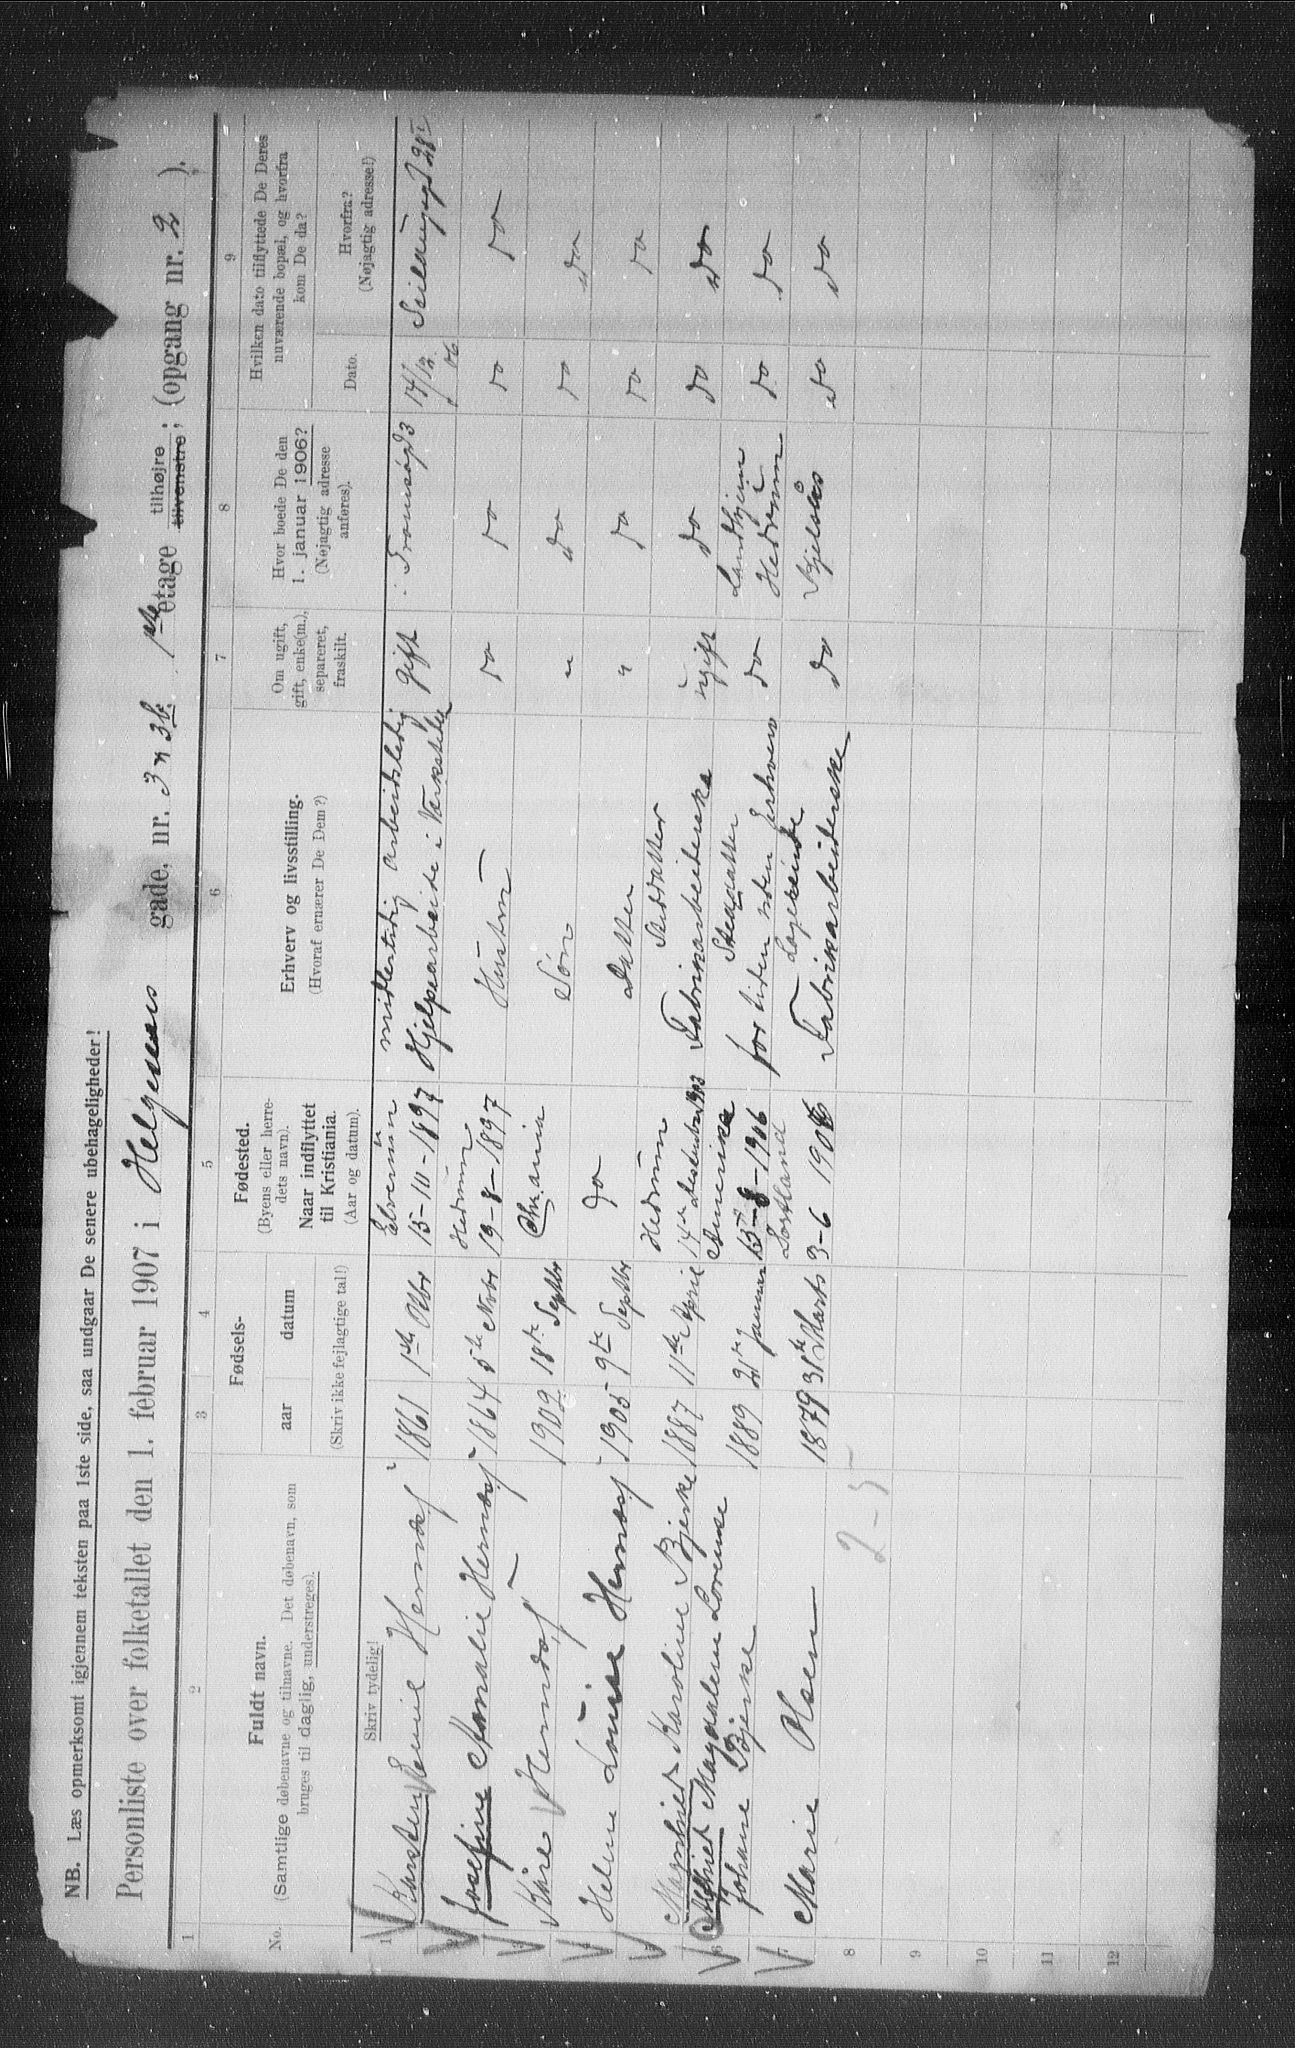 NB. Læs opmerksomt igjennem teksten paa 1ste side, saa undgaar De senere ubehageligheder!
Personliste over folketallet den 1. februar 1907 i Helgesens gade, nr. 3 & 3b. 1ste etage tilhøjre tilvenstre; (opgang nr. 2 ).
1 2 3 4 5 6 7 8 9
No.
Fuldt navn.
(Samtlige døbenavne og tilnavne. Det døbenavn, som
bruges til daglig, understreges).
Skriv tydelig!
Fødsels-
aar datum
(Skriv ikke fejlagtige tal!)
Fødested.
(Byens eller herre-
dets navn).
Naar indflyttet
til Kristiania.
(Aar og datum).
Erhverv og livsstilling.
(Hvoraf ernærer De Dem?)
Om ugift,
gift, enke(m.),
separeret,
fraskilt.
Hvor boede De den
1. januar 1906?
(Nøjagtig adresse
anføres).
Hvilken dato tilflyttede De Deres
nuværende bopæl, og hvorfra
kom De da?
Dato.
Hvorfra?
(Nøjagtig adresse!)
Elverum midlertidig arbeidsledig
1 Karsten Emil Herndaf 1861 1ste Oktbr 15-10-1897 Hjelpearbeide i Værksteder gift Tromsøgd 3 14/12 06 Seildugsgd 28
Hedrum
2 Josefine Amalie Herndaf 1864 5te Novbr 19-8-1897 Hustru do do do do
3 Kåre Herndaf 1902 18te Septbr Chr.ania Søn " do do do
4 Helene Louise Herndaf 1905 9te Septbr do Datter " do do do
Hedrum Steddatter
5 Karoline Bjerke 1887 11te April 14de 1903 Fabrikarbeiderske ugift do do do
Magdalene Lovense Amerika Steddatter Landhjem
6 Johane Bjerke 1889 21te Januar 1906 for tiden uden Erhverv do Hedrum do do
Logerende
7 Marie Olsen 1879 31te Marts 3-6 1906 Fabrikarbeiderske do Kjelsås do do
8
9
10
11
12
2-5